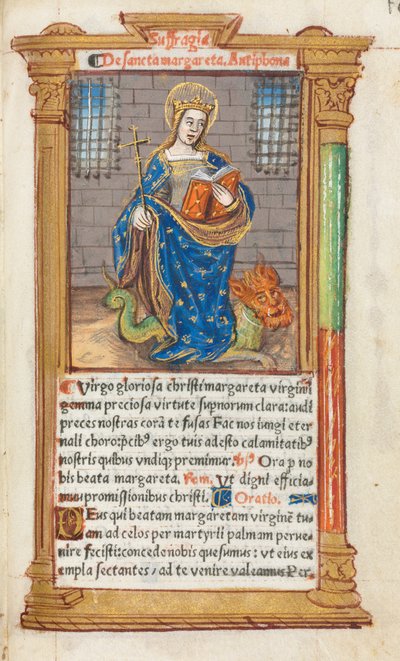 Suffragia
De sancta margareta. Antiphona
Virgo gloriosa christi margareta virginū
gemma preciosa virtute supnorum clara: audi
preces nostras corā te fusas Fac nos iungi eter
nali choro: p̄cibꝰ ergo tuis adesto calamitatibꝰ
nostris quibus vndiqꝫ premimur. Vs̄. Ora p no
bis beata margareta. Rem. Vt digni efficia
mur promissionibus christi. Oratio.
DEus qui beatam margaretam virginē tu-
am ad celos per martyrii palmam perue-
nire fecisti: concede nobis quesumus: vt eius ex
empla sectantes, ad te venire valeamus Per.